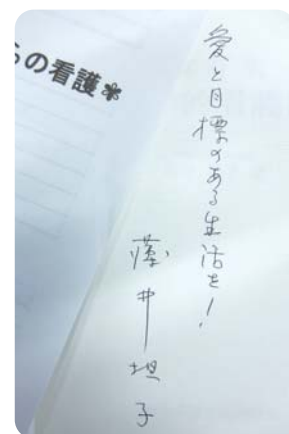 らの看護✽
愛と目標のある生活を!
藤井坦子